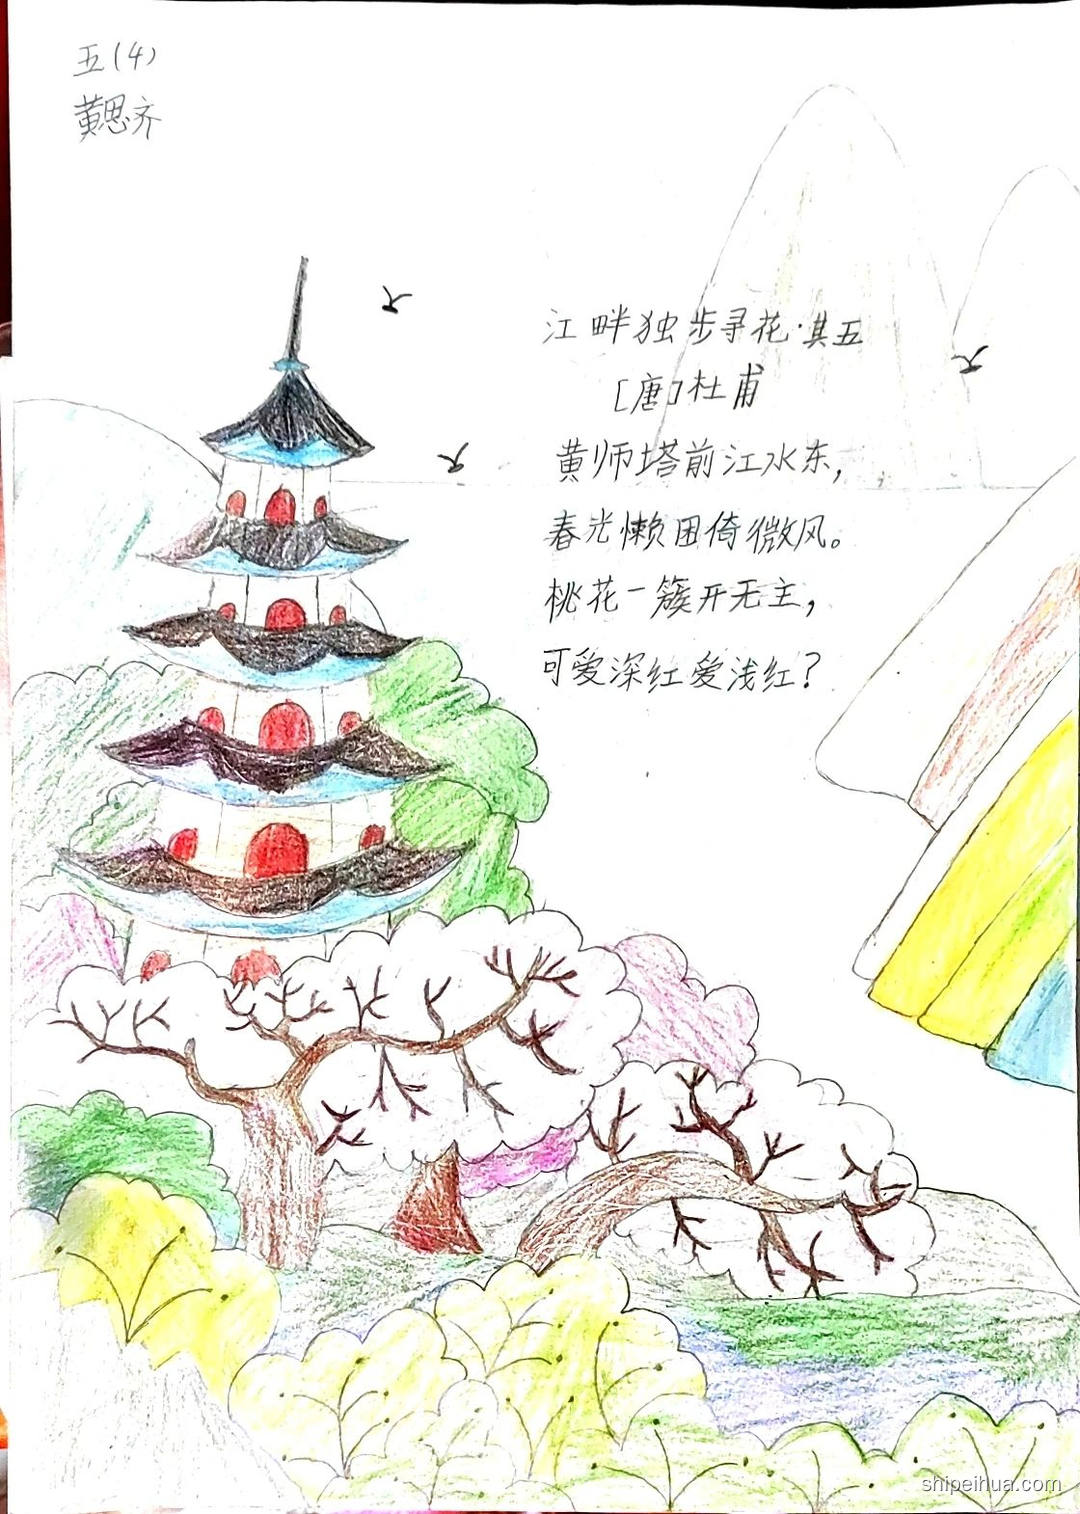 五(4)
黄思齐
江畔独步寻花·其五
[唐]杜甫
黄师塔前江水东，
春光懒困倚微风。
桃花一簇开无主，
可爱深红爱浅红？
shipeihua.com